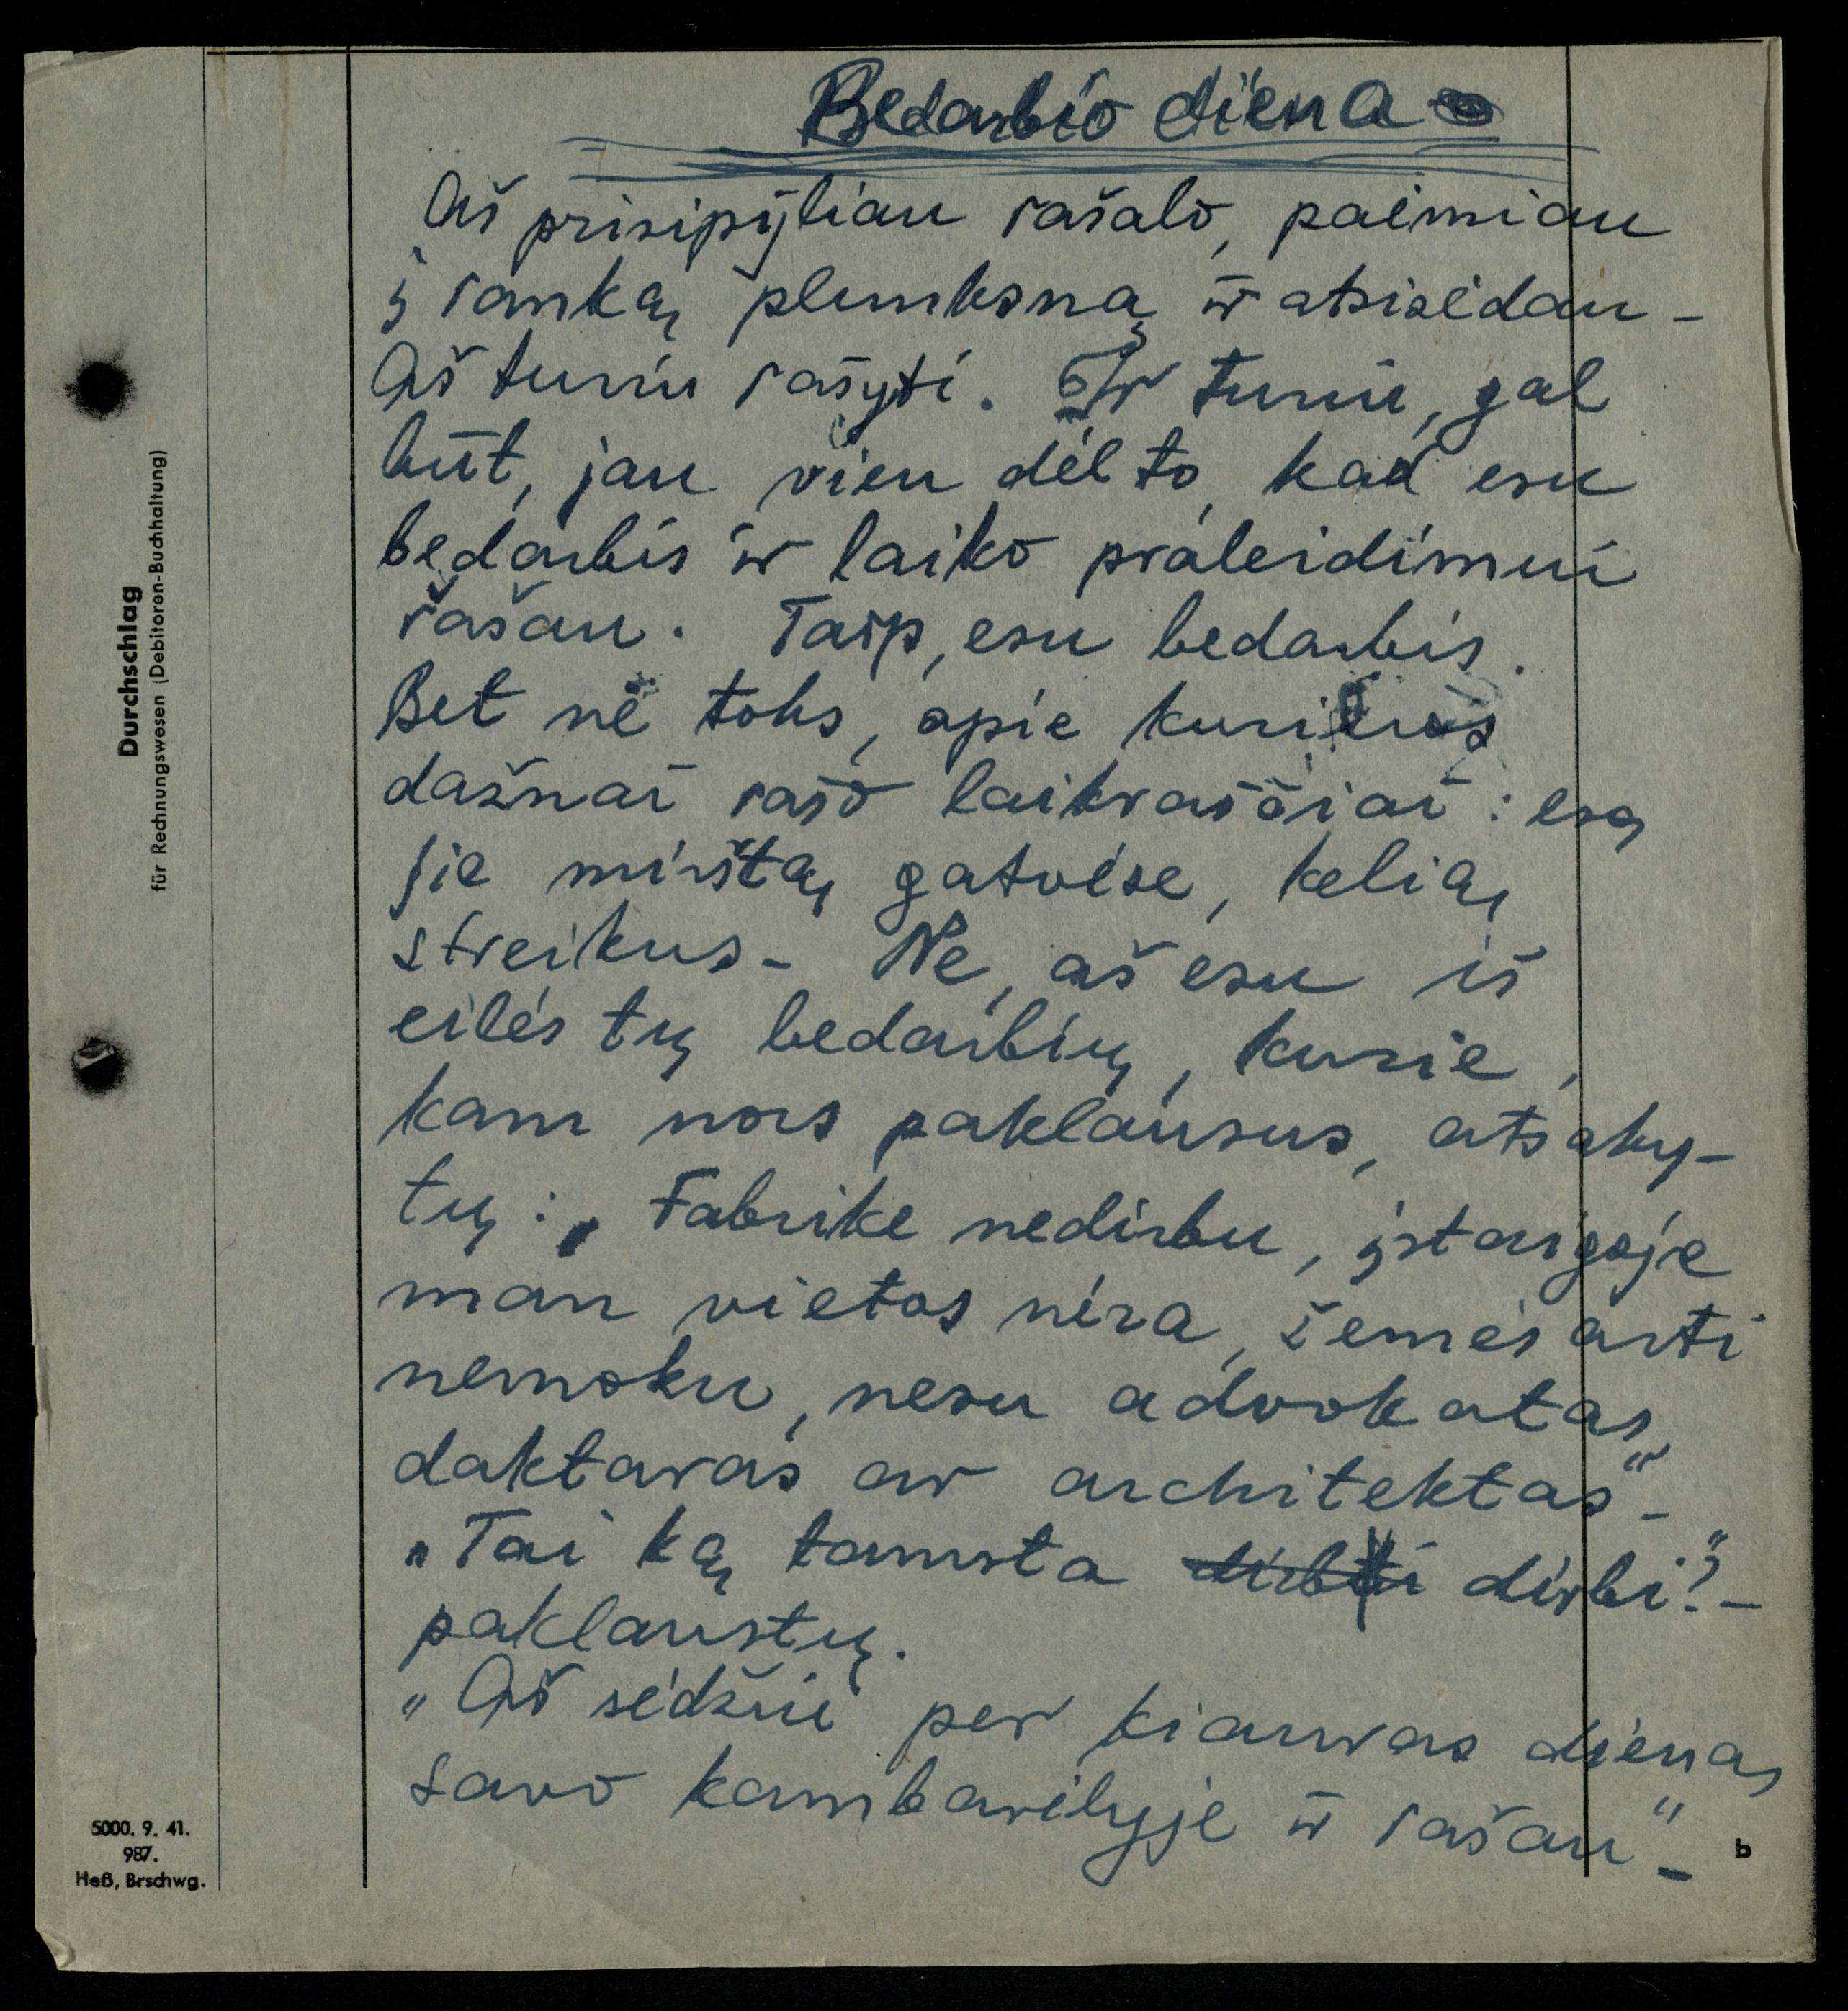 Bedarbio diena
Aš prisipyliau rašalo, paėmiau
į ranką plunksną ir atsisėdau –
Aš turiu rašyti. Ir turiu, gal
būt, jau vien dėl to, kad esu
bedarbis ir laiko praleidimui
rašau. Taip, esu bedarbis.
Bet ne toks, apie kuriuos
dažnai rašo laikraščiai: esą
jie mirštą gatvėse, kelią
streikus – Ne, aš esu iš
eilės tų bedarbių, kurie,
kam nors paklausus, atsaky-
tų: „Fabrike nedirbu, įstaigoje
man vietos nėra, žemės arti
nemoku, nesu advokatas,
daktaras ar architektas“ –
„Tai ką tamsta dirbti dirbi?“ –
paklaustų.
„Aš sėdžiu per kiauras dienas
savo kambarėlyje ir rašau“ –
Durchschlag
für Rechnungswesen (Debitoren-Buchhaltung)
5000. 9. 41.
987.
Heß, Brschwg.
b